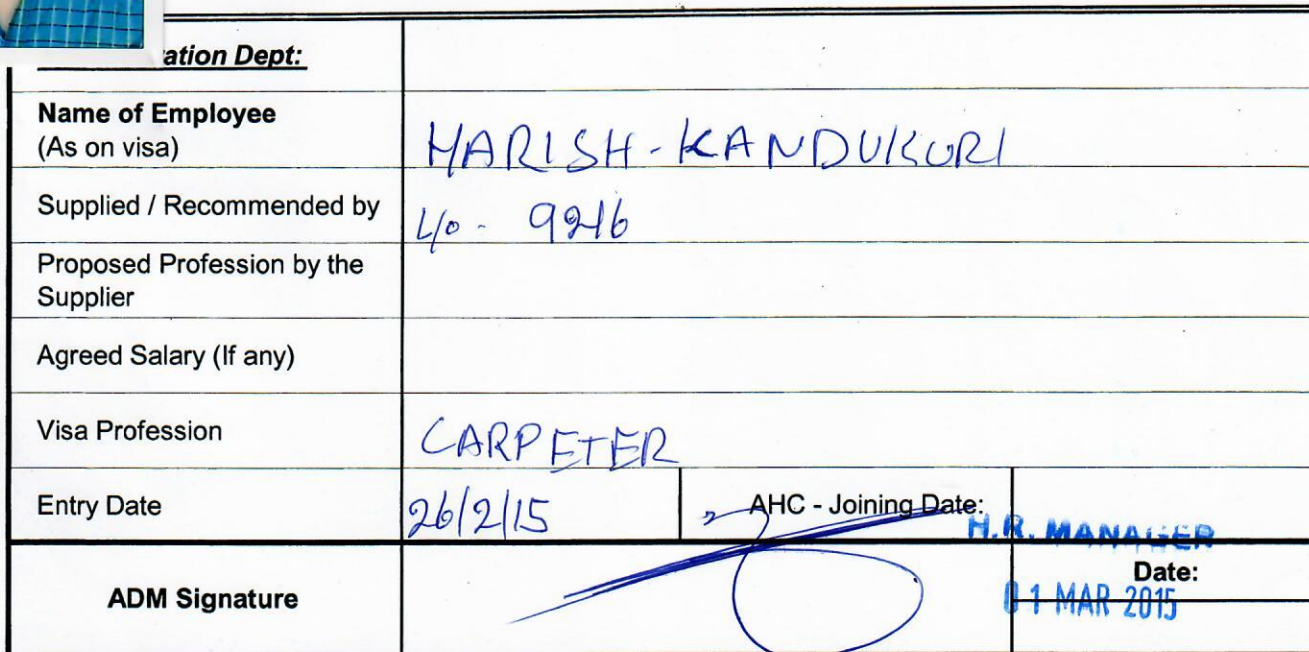 ation Dept:
Name of Employee
(As on visa)
HARISH - KANDUKURI
Supplied / Recommended by
L/o - 9216
Proposed Profession by the
Supplier
Agreed Salary (If any)
Visa Profession
CARPETER
Entry Date
26/2/15
AHC - Joining Date:
H.R. MANAGER
ADM Signature
Date:
01 MAR 2015